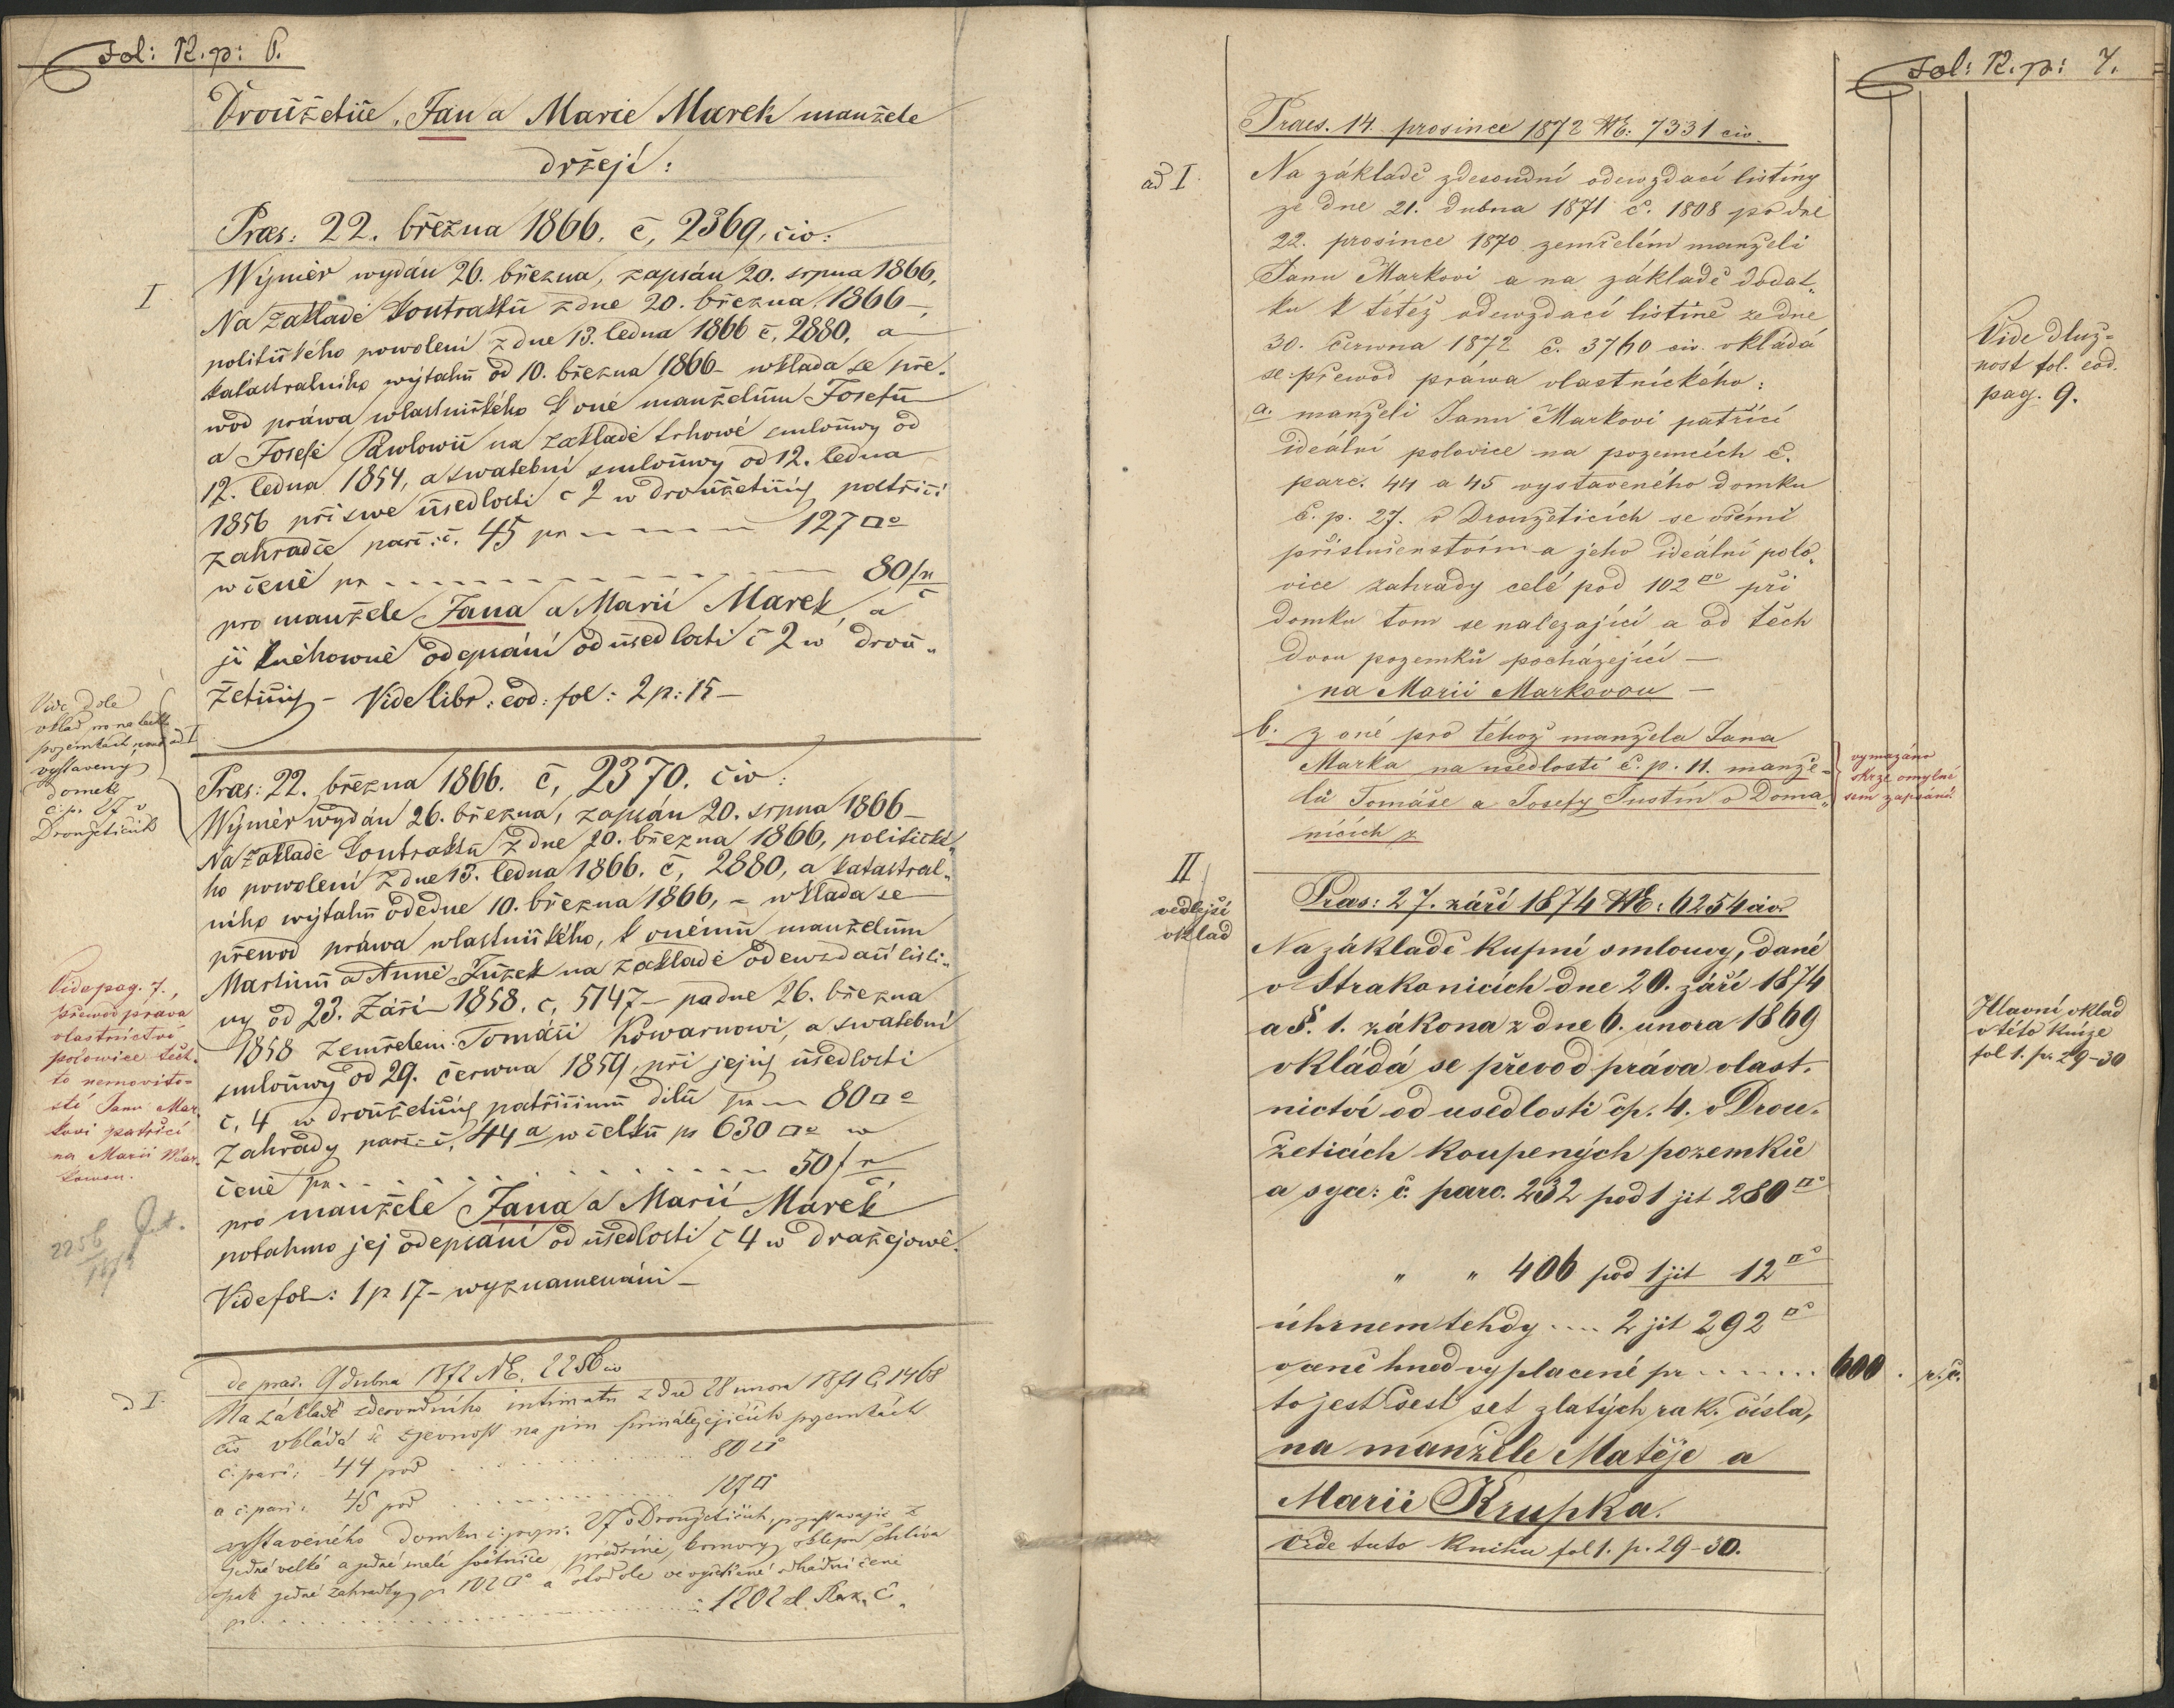 Fol: R. p: 6.
Droužetice, Jan a Marie Marek manžele
držejí:
Præs: 22. března 1866. č, 2369, civ:
I
Wýměr wydán 26. března, zapsán 20. srpna 1866.
Na základě kontraktu z dne 20. března 1866 –
politického powolení z dne 13. ledna 1866 č, 2880, a
katastralního wýtahu od 10. března 1866 – wkláda se pře-
wod práwa wlastnického k oné manželům Josefu
a Josefě Pawlowic na základě trhowé smlouwy od
12. ledna 1854, a swatební smlouwy od 12. ledna
1856 při swé usedlosti č 2 w droužeticích patřící
zahradce parc: č. 45 pr 127 □°
w ceně pr 80 f
pro manžele Jana a Marii Marek, a
její kněhowně odepsání od usedlosti č 2 w drou-
žeticích – Vide libr: eod: fol: 2 p: 15 –
Vide dole
vklad pro na těchto
pozemkách
vystavený
domek
č. p. 27 v
Droužeticích
ad I
Præs: 22. března 1866. č, 2370. civ:
Wýměr wydán 26. března, zapsán 20. srpna 1866 –
Na základě kontraktu z dne 20. března 1866, politické-
ho powolení z dne 13. ledna 1866. č, 2880, a katastral-
ního wýtahu ode dne 10. března 1866, – wkláda se
přewod práwa wlastnického, k onému manželům
Martinu a Anně Žužek na základě odewzdací listi-
ny od 23. Září 1858. č, 5147 – pa dne 26. března
1858 zemřelém Tomáši Kowarnowi, a swatební
smlouwy od 29. čerwna 1859, při jejich usedlosti
č, 4 w droužeticích patřícimu dilu pr 80 □°
Zahrady parc: č, 44 a w celku pr 630 □° w
ceně pr 50 f
pro manžele Jana a Marii Marek
potahmo jej odepsání od usedlosti č 4 w dražejowě.
Vide fol: 1 p 17 – wyznamenání –
Vide pag. 7.,
převod práva
vlastnictví
polowice těch-
to nemovito-
stí Janu Mar-
kovi patřící
na Marii Mar-
kowou.
2256
ad I.
de præs. 9 dubna 1872 № E. 2256 civ
Na základě zdesoudního intimatu z dne 28 unora 1871 č. 1468
civ vkládá se zjevnost na jim přináležejících pozemkách
č. parc: 44 pod 80 □°
a č. parc. 45 pod 127 □°
vystaveného domku č. pop: 27 v Droužeticích, pozůstavající z
jedné velké a jedné malé světnice, předsíně, komory, sklepu chléva
pak jedné zahradky pr 102 □° a stodole ve vyšetřené odhadní ceně
pr 1202 zl. Rak. č.
Fol: R. p: 7.
Praes. 14. prosince 1872 № E: 7331 civ.
ad I.
Na základě zdesoudní odewzdací listiny
ze dne 21. dubna 1871 č. 1808 po dne
22. prosince 1870 zemřelém manželi
Janu Markovi a na základě dodat-
ku k tétéž odewzdací listině ze dne
30. června 1872 č. 3760 civ. vkládá
se přewod práwa vlastnického:
a. manželi Janu Markovi patřící
ideální polovice na pozemcích č.
parc. 44 a 45 vystaveného domku
č. p. 27. v Droužeticích se všemi
příslušenstvím a jeho ideální polo-
vice zahrady celé pod 102 □° při
domku tom se nalezající a od těch
dvou pozemků pocházející –
na Marii Markovou –
b. z oné pro téhož manžela Jana
Marka na usedlosti č. p. 11. manže-
lů Tomáše a Josefy Justin v Doma-
nicích z
vymazáno
skrze omylné
sem zapsání.
Vide dluž-
nost fol. eod.
pag. 9.
II
vedlejší
vklad
Præs: 27. září 1874 № E: 6254 civ.
Na základě kupní smlouvy, dané
v Strakonicích dne 20. září 1874
a §. 1. zákona z dne 6. unora 1869
vkládá se převod práva vlast-
nictví od usedlosti čp. 4. v Drou-
žeticích koupených pozemků
a sice: č. parc. 232 pod 1 jit 280 □°
" " 406 pod 1 jit 12 □°
úhrnem tehdy .... 2 jit 292 □°
v ceně hned vyplacené pr ....... 600 . r. č.
to jest šest set zlatých rak. čísla,
na manžele Matěje a
Marii Krupka.
Vide tuto knihu fol 1. p. 29-30.
Hlavní vklad
v této knize
fol 1. p. 29-30